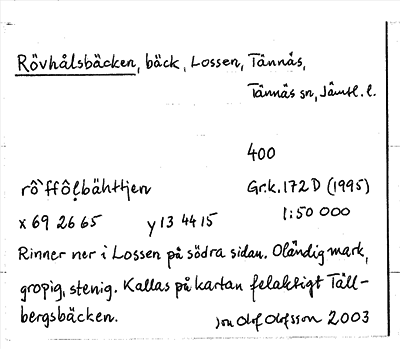 Rövhålsbäcken, bäck, Lossen, Tännäs,
Tännäs sn, Jämtl. l.
400
rô`ffôḷbähttjen Gr.k. 172 D (1995)
x 69 26 65 y 13 44 15 1:50 000
Rinner ner i Lossen på södra sidan. Oländig mark,
gropig, stenig. Kallas på kartan felaktigt Tåll-
bergsbäcken. Jon Olof Olofsson 2003